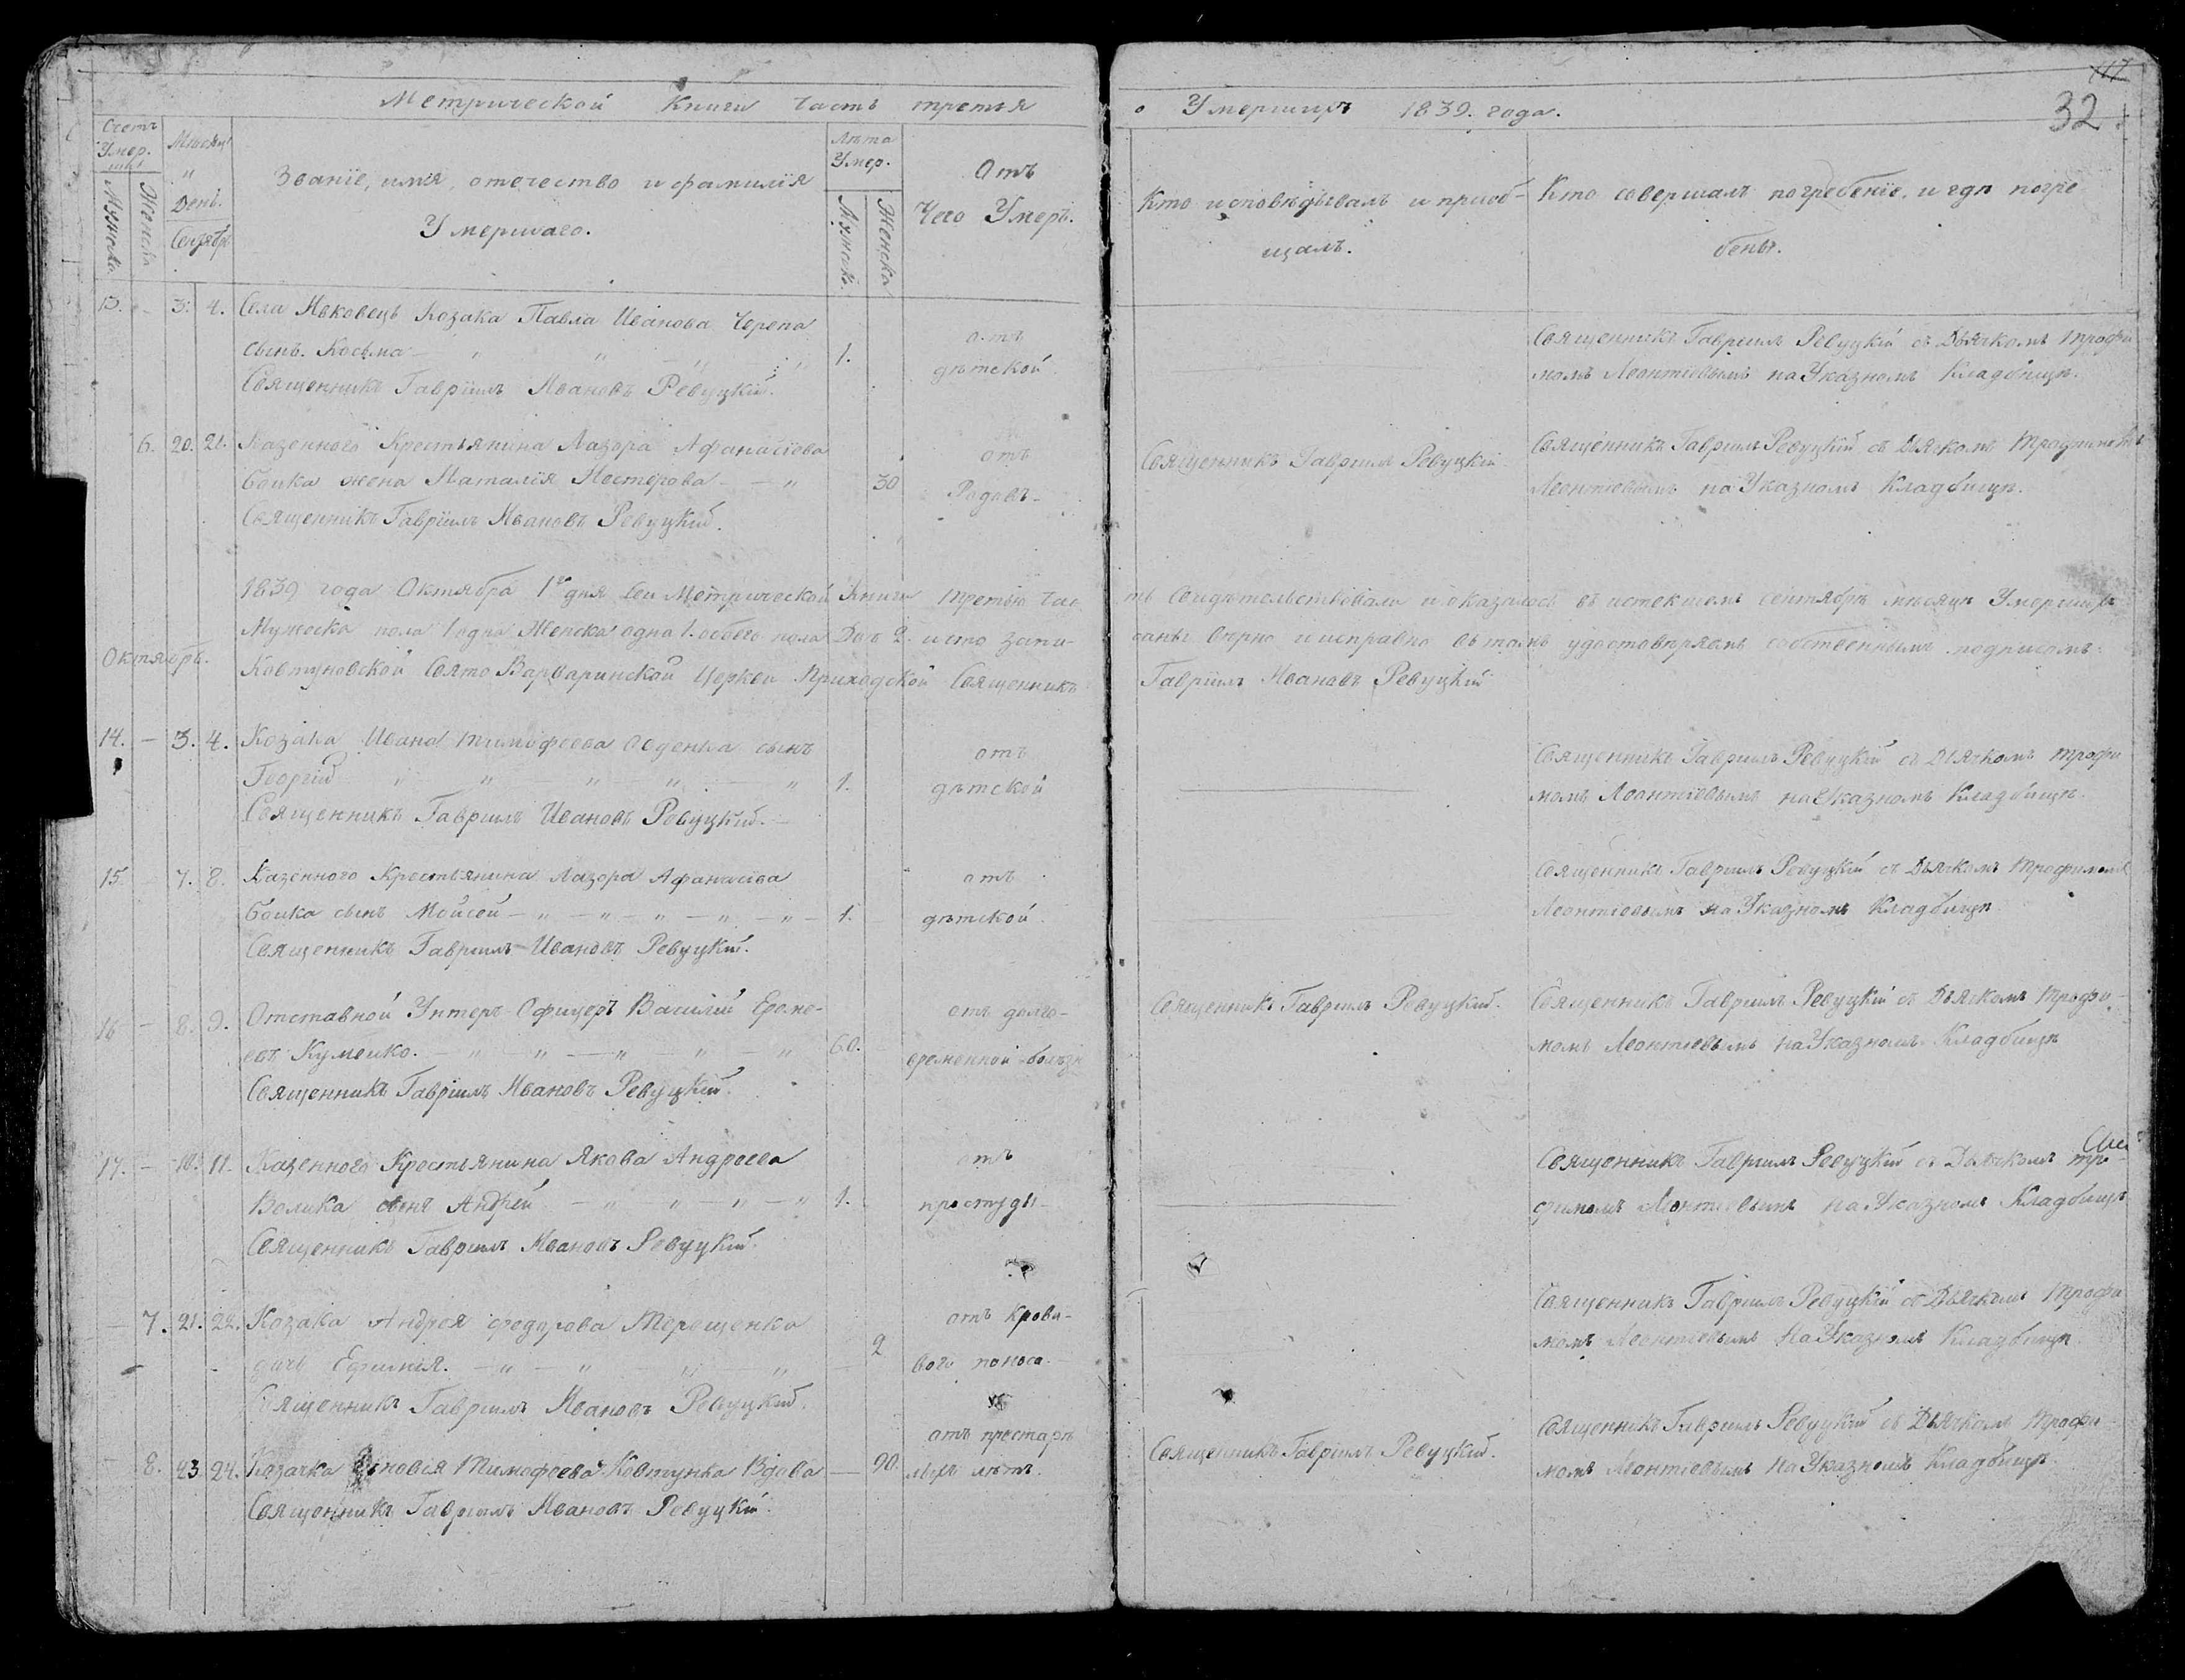 Метрической Книги Часть третья
о Умершихъ 1839. года.
117
32
Счетъ Умер.
Мужеска
Женска
Мѣсяцъ
"
День.
Сентябрь
Званіе, имя, отечество и фамилія
Умершаго.
Лѣта
Умер.
Мужск.
Женска
Отъ
Чего Умеръ.
Кто исповѣдывалъ и приоб-
щалъ.
Кто совершалъ погребеніе, и гдѣ погре
бены.
13. - 3. 4. Села Ивковецъ Козака Павла Иванова Черепа
сынъ. Косьма 1.
Священникъ Гавріилъ Ивановъ Ревуцкій.
отъ
дѣтской.
Священникъ Гавріилъ Ревуцкій съ Дьячкомъ Трофи
момъ Леонтіевымъ на Указномъ Кладбищѣ.
6. 20. 21. Казенного Крестьянина Лазора Афанасіева
Бойка жена Наталія Нестерова 30
Священникъ Гавріилъ Ивановъ Ревуцкій.
отъ
Родовъ
Священникъ Гавріилъ Ревуцкій
Священникъ Гавріилъ Ревуцкій съ Дьячкомъ Трофимомъ
Леонтіевымъ на Указномъ Кладбищѣ.
1839 года Октября 1го дня Сеи Метрической Книги третью час
ть Свидѣтельствовали и оказалось въ истекшемъ сентябрѣ мѣсяцѣ Умершихъ
Мужеска пола 1 одна Женска одна 1. обоего пола Двѣ 2. и что запи-
саны вѣрно и исправно въ томъ удостовѣряемъ собственнымъ подписомъ:
Ковтуновской Свято Варваринской Церкви Приходской Священникъ
Гавріилъ Ивановъ Ревуцкій
Октябрь.
14. - 3. 4. Козака Ивана Тимофеева сынъ
Георгій 1.
Священникъ Гавріилъ Ивановъ Ревуцкій.
отъ
дѣтской
Священникъ Гавріилъ Ревуцкій съ Дьячкомъ Трофи
момъ Леонтіевымъ на Указномъ Кладбищѣ.
15 - 7. 8. Казенного Крестьянина Лазора Афанасіева
Бойка сынъ Моисей 1.
Священникъ Гавріилъ Ивановъ Ревуцкій.
отъ
дѣтской.
Священникъ Гавріилъ Ревуцкій съ Дьячкомъ Трофимомъ
Леонтіевымъ на Указномъ Кладбищѣ
16 - 8. 9. Отставной Унтеръ-Офицеръ Василій Ереме-
евъ Куменко. 60.
Священникъ Гавріилъ Ивановъ Ревуцкій.
отъ долго-
временной болѣзн
Священникъ Гавріилъ Ревуцкій.
Священникъ Гавріилъ Ревуцкій съ Дьячкомъ Трофи-
момъ Леонтіевымъ на Указномъ Кладбищѣ
17. - 10. 11. Казенного Крестьянина Якова Андреева
Волика сынъ Андрей 1.
Священникъ Гавріилъ Ивановъ Ревуцкій.
отъ
простуды
Священникъ Гавріилъ Ревуцкій съ Дьячкомъ Тро-
фимомъ Леонтіевымъ на Указномъ Кладбищѣ
7. 21. 22. Козака Андрея Федорова Терещенка
дочь Ефимія. 2
Священникъ Гавріилъ Ивановъ Ревуцкій.
отъ крова-
вого поноса.
Священникъ Гавріилъ Ревуцкій съ Дьячкомъ Трофи
момъ Леонтіевымъ на Указномъ Кладбищѣ.
8. 23. 24. Казачка Зиновія Тимофеева Ковтунка Вдова 90.
Священникъ Гавріилъ Ивановъ Ревуцкій.
отъ престарѣ
лыхъ лѣтъ.
Священникъ Гавріилъ Ревуцкій.
Священникъ Гавріилъ Ревуцкій съ Дьячкомъ Трофи-
момъ Леонтіевымъ на Указномъ Кладбищѣ.